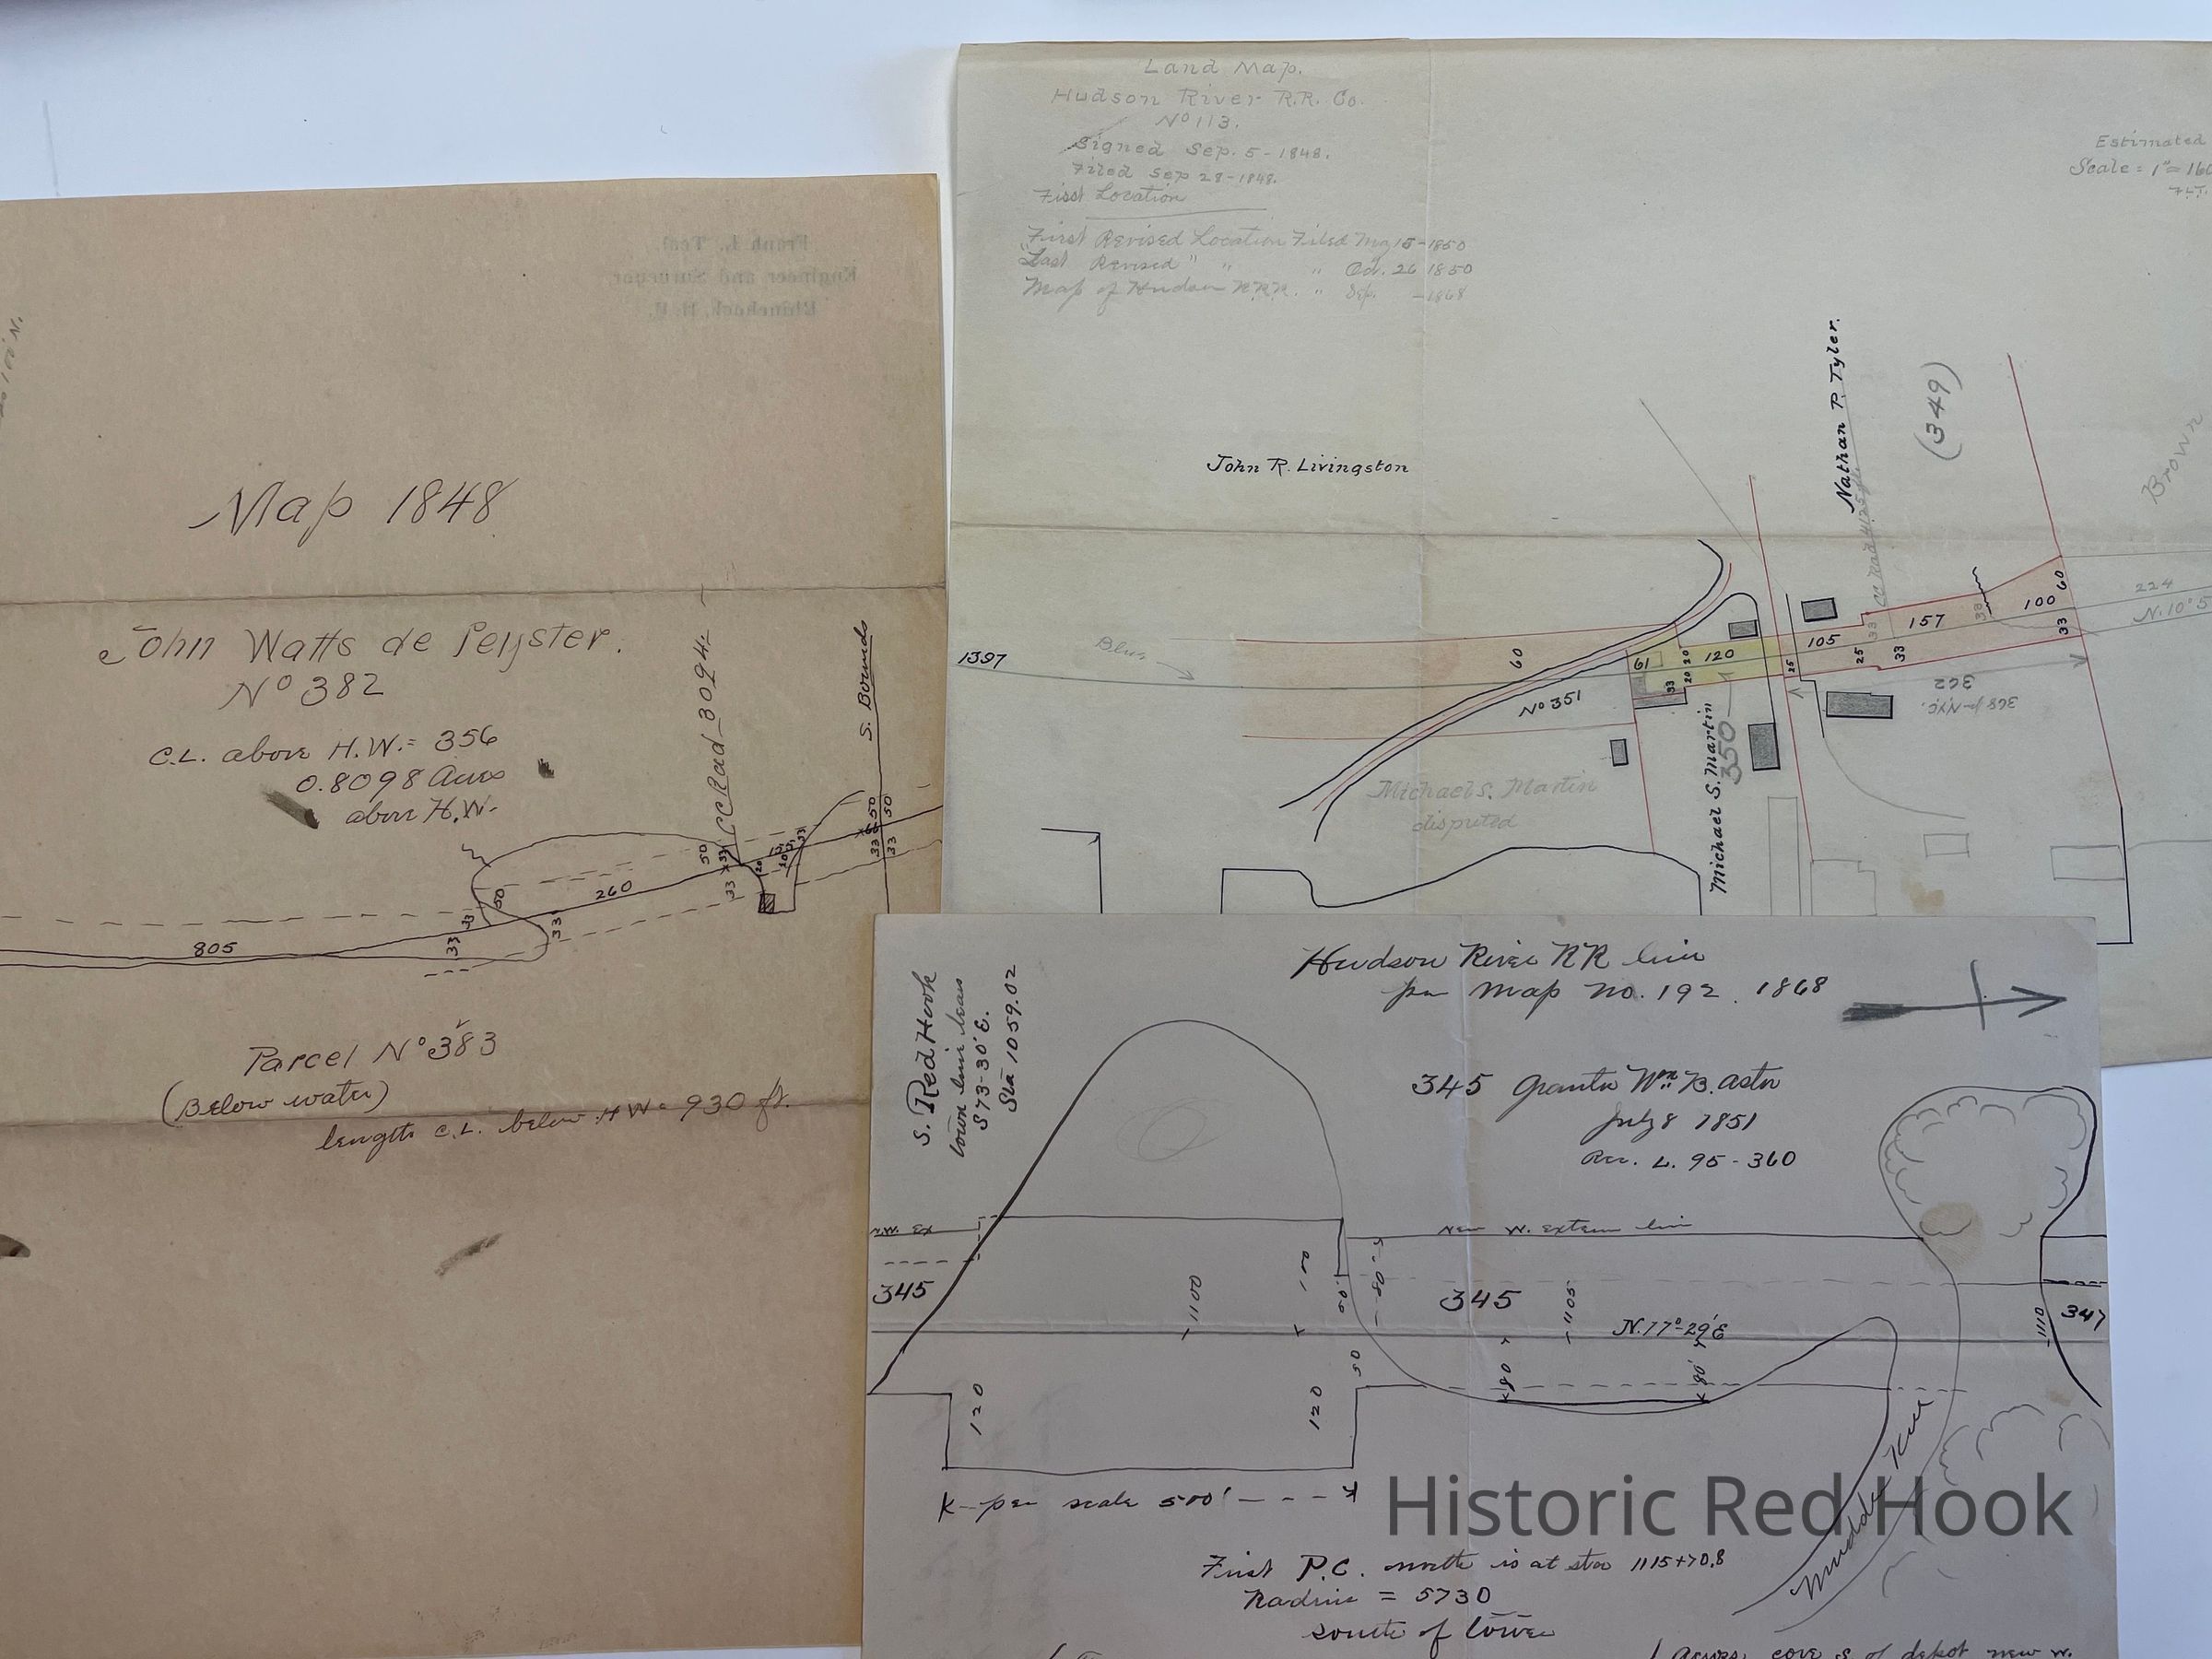 Map 1848
John Watts de Peyster.
Nº 382
C.L. above H.W. = 356
0.8098 Acres
above H.W.
CC Road 3094
S. Bounds
50
50
66
33
33
50
33
33
20
50
33
33
33
260
805
Parcel Nº 383
(Below water)
length C.L. below H.W = 930 ft.
Frank L. Teal
Engineer and Surveyor
Rhinebeck, N. Y.
Land Map.
Hudson River R.R. Co.
Nº 113.
Signed Sep. 5 - 1848.
Filed Sep 28 - 1848.
First Location
First Revised Location Filed 15-1850
Last Revised " " " Oct. 26 1850
Map of Hudson R.R.R. " Sep. -1868
Estimated
Scale = 1" = 160
F.L.T.
John R. Livingston
Nathan P. Tyler.
(349)
Brown
1397
Blue
60
Nº 351
61
33
20
20
120
25
105
25
33
157
33
33
100
60
33
224
N. 10° 5
362
368 p-NYC.
Michael S. Martin
350
Michael S. Martin
disputed
Hudson River RR line
per Map no. 192. 1868
S. Red Hook
town line bears
S 73-30' E.
Sta 1059.02
345 Grantor Wm B. Astor
July 8 1851
Rec. L. 95 - 360
N.W. Ex
New W. extern line
345
1100
50
345
1105
N. 17°-29' E
1110
347
120
120
50
80
80'
K - per scale 500' - - - K
Mudder Kill
First P.C. north is at sta 1115+70.8
Radius = 5730
south of
Across cove S of depot new W.
Historic Red Hook